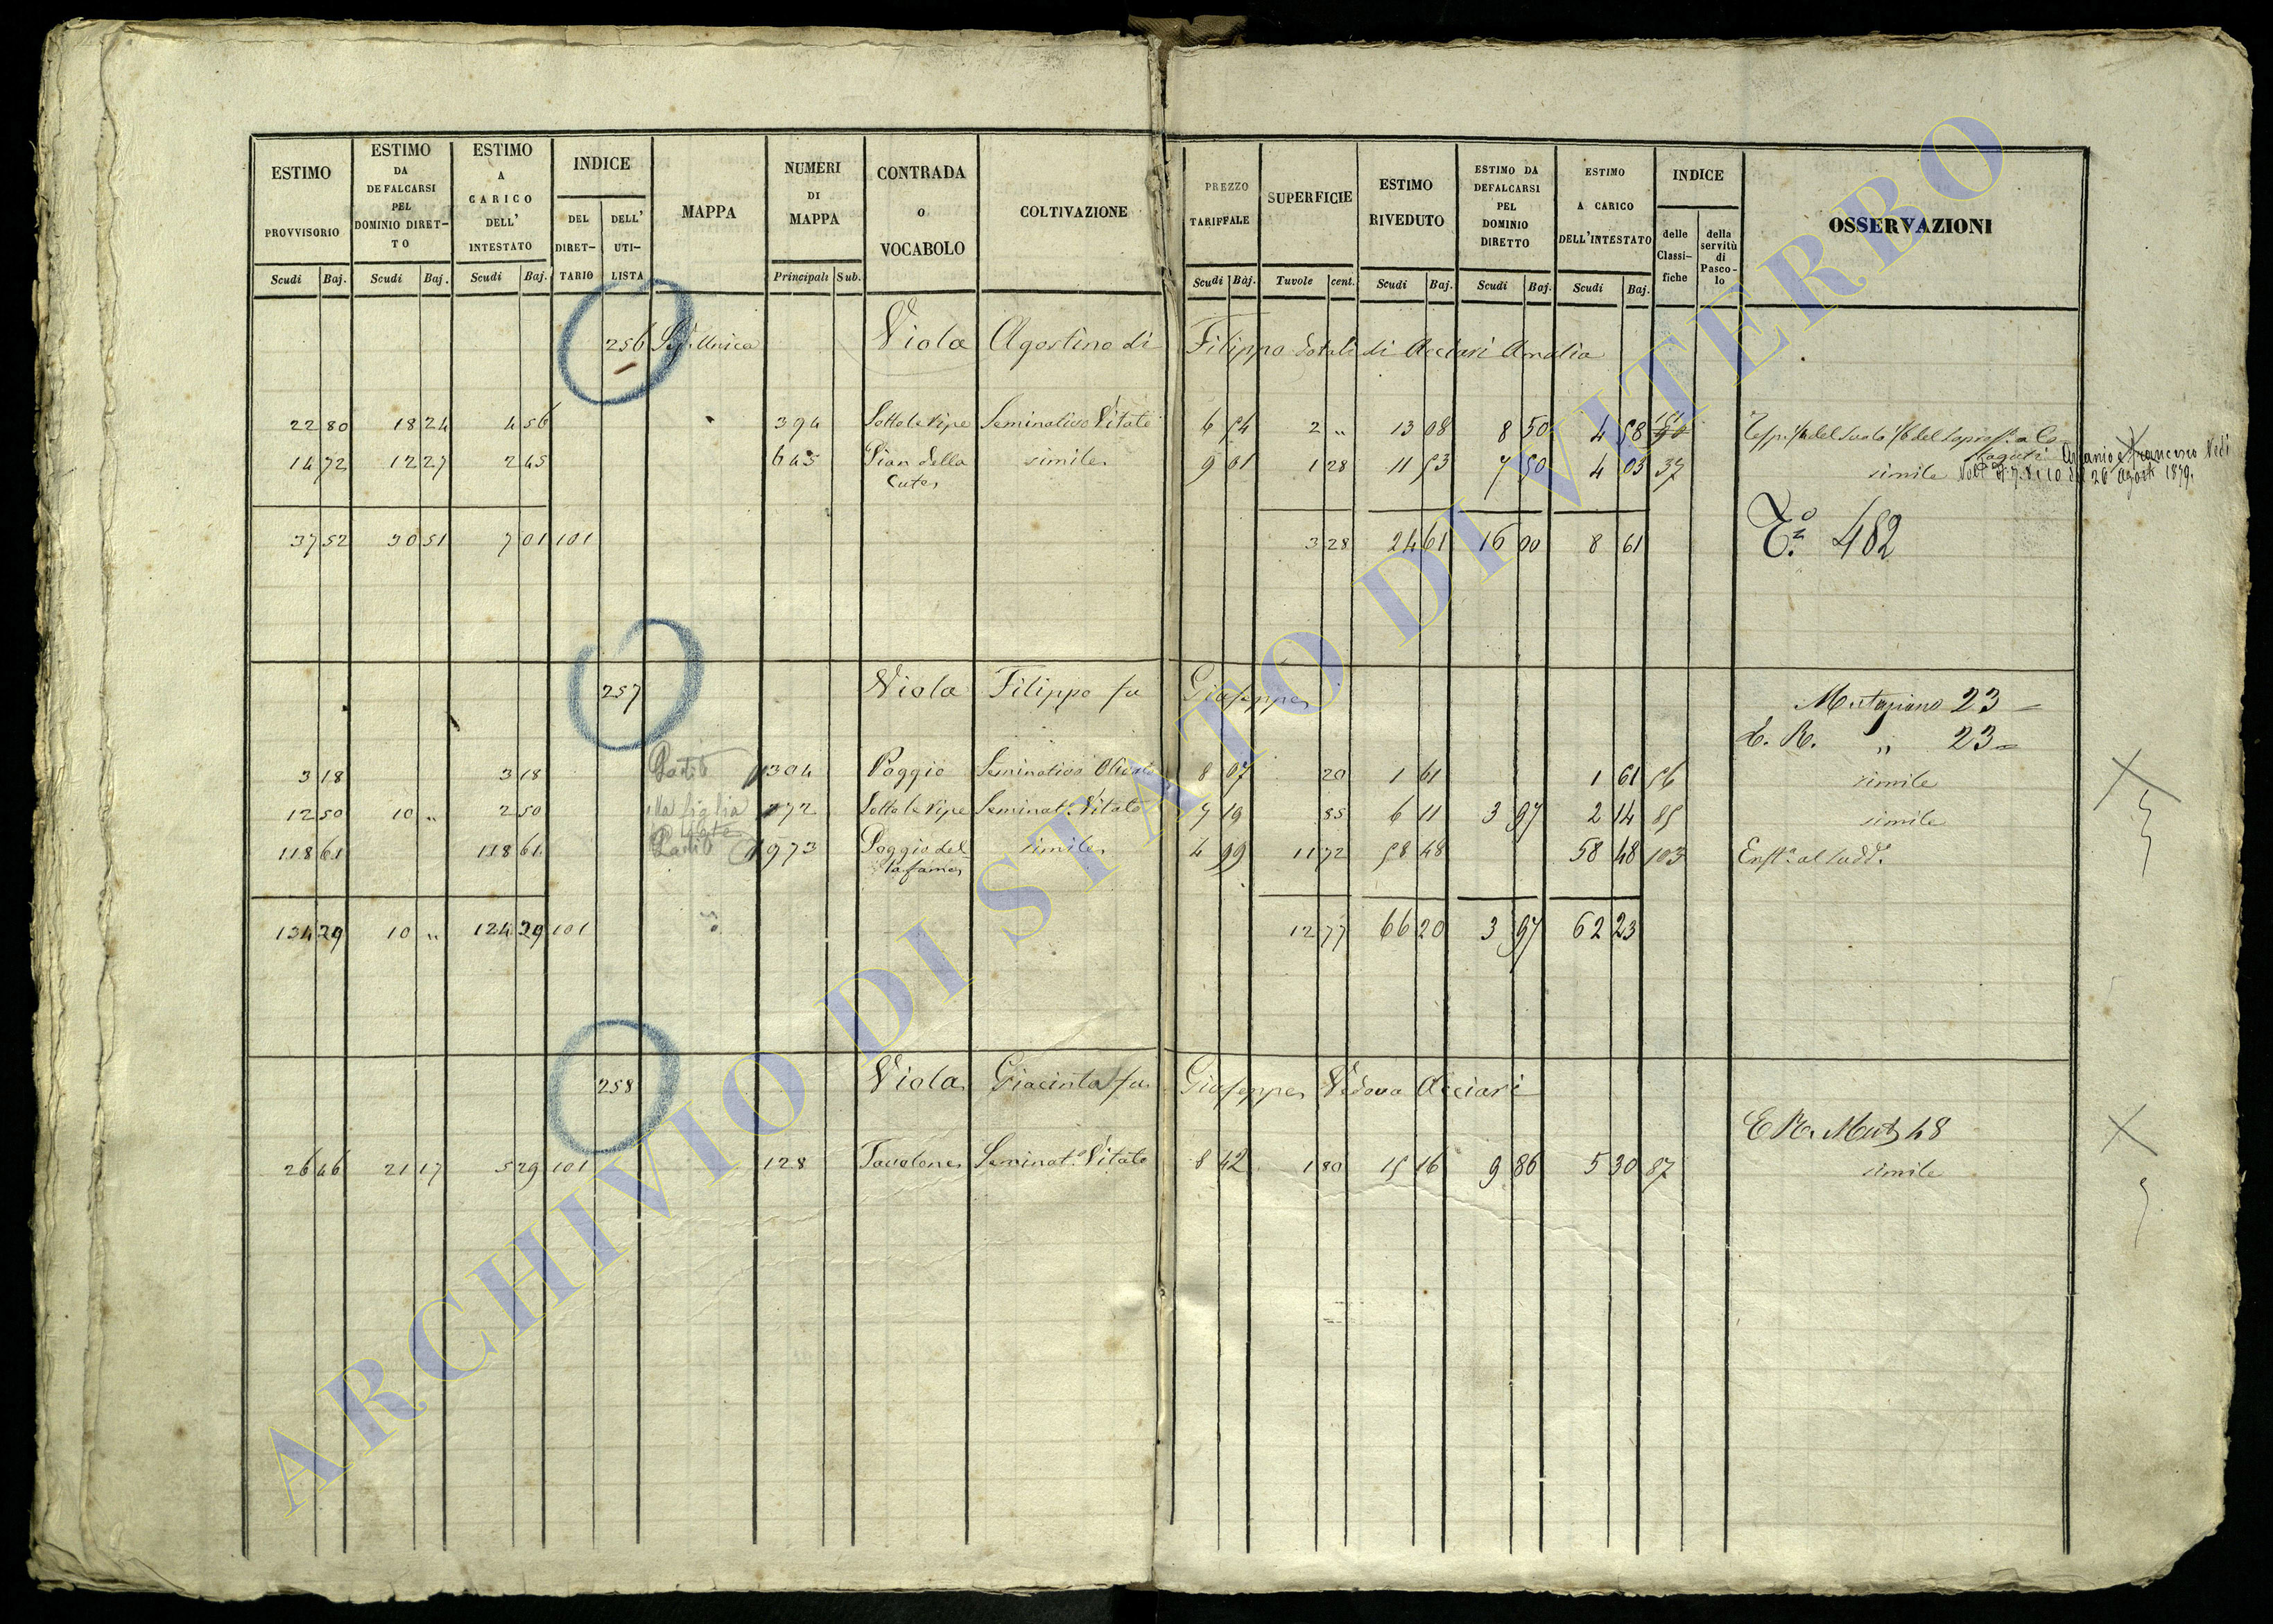 ESTIMO PROVVISORIO Scudi Baj. ESTIMO DA DEFALCARSI PEL DOMINIO DIRETTO Scudi Baj. ESTIMO A CARICO DELL' INTESTATO Scudi Baj. INDICE DEL DIRETTARIO DELL' UTILISTA MAPPA NUMERI DI MAPPA Principali Sub. CONTRADA O VOCABOLO COLTIVAZIONE PREZZO TARIFFALE Scudi Baj. SUPERFICIE Tavole cent. ESTIMO RIVEDUTO Scudi Baj. ESTIMO DA DEFALCARSI PEL DOMINIO DIRETTO Scudi Baj. ESTIMO A CARICO DELL'INTESTATO Scudi Baj. INDICE delle Classifiche della servitù di Pascolo OSSERVAZIONI
256 Sez. Unica Viola Agostino di Filippo dotali di Acciari Amalia
22 80 18 24 4 56 394 Sotto le Ripe Seminativo Vitato 6 54 2 „ 13 08 8 50 4 58
14 72 12 27 2 45 645 Pian della Cute simile 9 01 1 28 11 53 7 50 4 03 37 simile 26 Agosto 1879.
37 52 30 51 7 01 101 3 28 24 61 16 00 8 61 482
257 Viola Filippo fu Giuseppe Mutazione 23
„ 23
3 18 3 18 1304 Poggio Seminativo Olivato 8 07 20 1 61 1 61 56 simile
12 50 10 „ 2 50 alla figlia 172 Sotto le Ripe Seminat. Vitato 7 19 85 6 11 3 97 2 14 85 simile
118 61 118 61 973 Poggio del simile 4 99 11 72 58 48 58 48 103
134 29 10 „ 124 29 101 12 77 66 20 3 97 62 23
258 Viola Giacinta fu Giuseppe Vedova Acciari
48
26 46 21 17 5 29 101 128 Tavolone Seminat.o Vitato 8 42 1 80 15 16 9 86 5 30 87 simile
ARCHIVIO DI STATO DI VITERBO